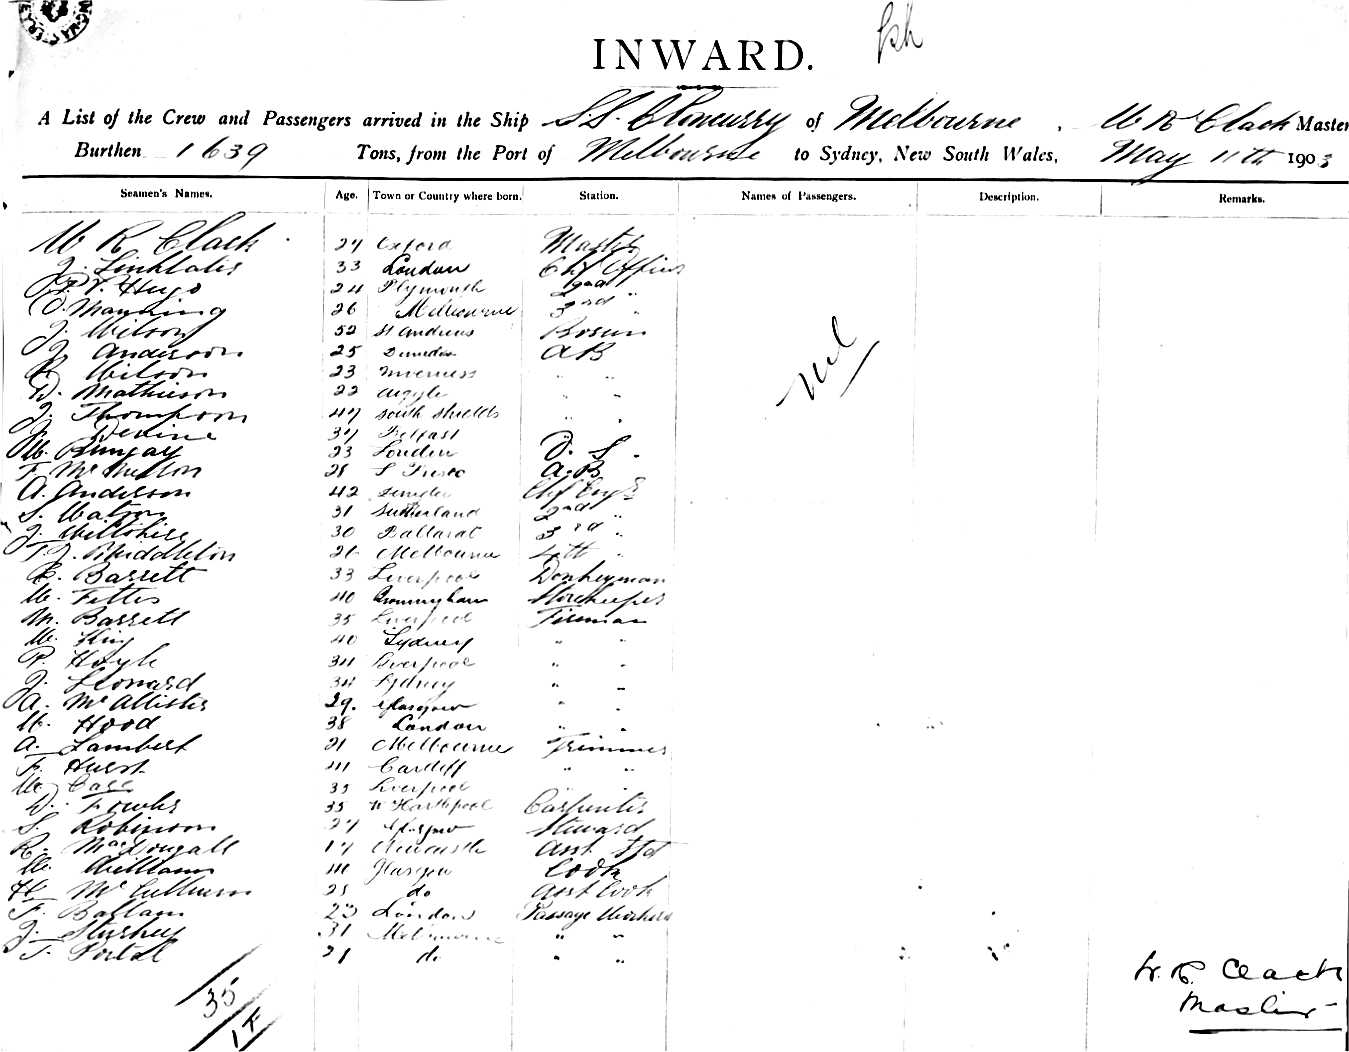 INWARD.
A List of the Crew and Passengers arrived in the Ship SS. Cloncurry of Melbourne, W R Clack Master
Burthen 1639 Tons, from the Port of Melbourne to Sydney, New South Wales, May 11th 1903
Seamen's Names. Age. Town or Country where born. Station. Names of Passengers. Description. Remarks.
W R Clack Oxford Master
J. 33 London Chf Officer
Hugo 24 Plymouth 2nd "
Manning 26 Melbourne 3rd "
J. Wilson 52 St Andrews Bosun
J. Anderson 25 Dundee AB
Wilson 23 Inverness " "
D. Mathieson 22 Argyle " "
J. Thompson 47 South Shields " "
J. Devine 37 Belfast
W. Bungay 23 London O. S.
F. 28 A.B
A. Anderson 42 Chf Engr
S. Watson 31 Sutherland 2nd "
J. Wiltshire 30 Ballarat 3rd "
T. J. Middleton Melbourne 4th "
Barrett 33 Liverpool Donkeyman
W. Fettes 40 Birmingham Storekeeper
M. Barrett 35 Liverpool Fireman
W. King 40 Sydney " "
P. Hoyle 34 Liverpool " "
J. Leonard 34 Sydney " "
A. McAllister 29. Glasgow " "
W. Hood 38 London " "
A. Lambert 21 Melbourne Trimmer
F. Hurst 41 Cardiff " "
W. 35 Liverpool
D. Fowler 35 W Hartlepool Carpenter
S. Robinson 27 Glasgow Steward
R. MacDougall 17 Newcastle Asst Std
W. Williams 41 Glasgow Cook
H. McCullum 28 do Asst Cook
F. Ballam 23 London Passage Workers
J. 31 Melbourne " "
T. Portal 28 do " "
nil
W. R. Clack
Master
35